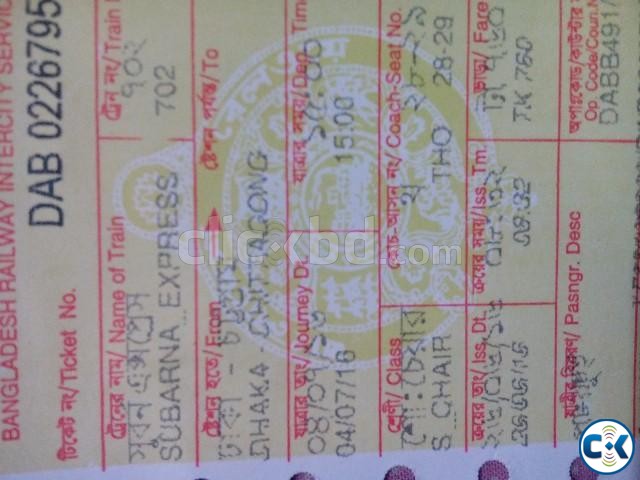 BANGLADESH RAILWAY INTERCITY SERVICE
টিকেট নং/Ticket No. DAB 0226795
ট্রেনের নাম/ Name of Train ট্রেন নং/Train
সুবর্ন এক্সপ্রেস ৭০২
SUBARNA EXPRESS 702
ষ্টেশন হতে/From ষ্টেশন পর্যন্ত/To
ঢাকা - চট্টগ্রাম
DHAKA - CHITTAGONG
যাত্রার তাং/Journey Dt. যাত্রার সময়/Dep. Time
০৪/০৭/১৬ ১৫:০০
04/07/16 15:00
শ্রেণী/ Class কোচ-আসন নং/Coach-Seat No.
শো: চেয়ার থ ২৮-২৯
S_CHAIR THO 28-29
ক্রয়ের তাং/Iss. Dt. ক্রয়ের সময়/Iss. Tm. ভাড়া/ Fare
09:32 TK 760
যাত্রীর বিবরণ/ Pasngr. Desc
Op. Code/Coun.N
DABB491/
clickbd.com
CK
ClickBD